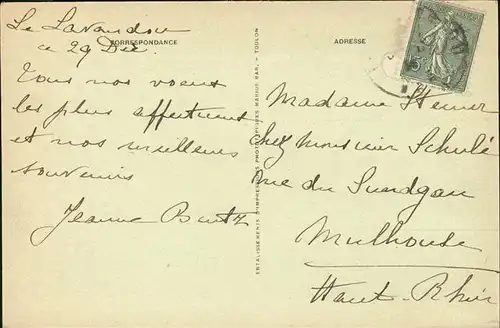 Le Lavandou
ce 29 Déc.
CORRESPONDANCE
Tous nos voeux
les plus affectueux
et nos meilleurs
souvenirs
Jeanne Butz
ETABLISSEMENTS D'IMPRESSIONS PHOTOGRAPHIQUES MARIUS BAR, — TOULON
ADRESSE
Madame
chez Monsieur Schulé
rue du Sundgau
Mulhouse
Haut-Rhin